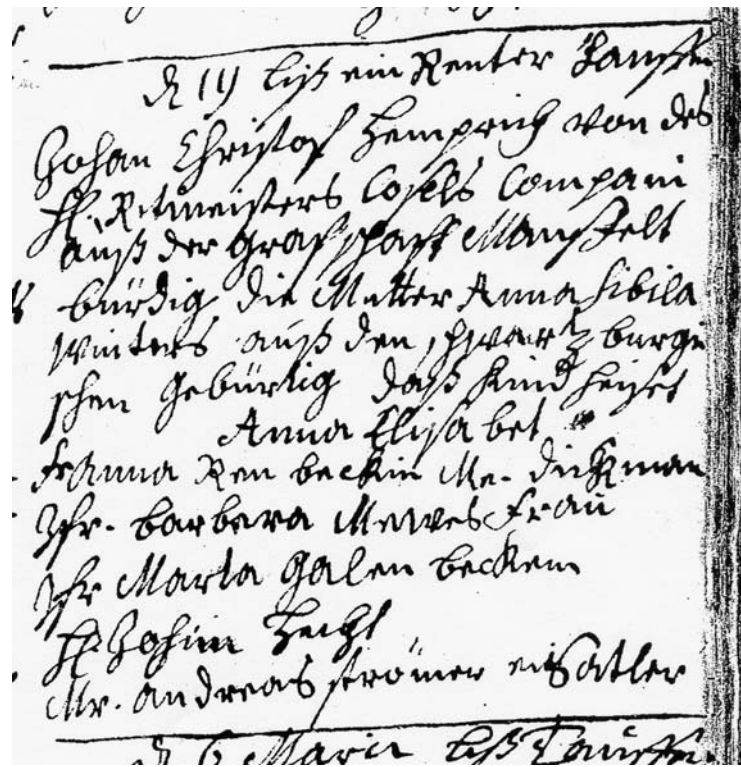 d 19 liß ein Reuter Tauffen
Johan Christof Hemprich von des
H. Ritmeisters Cosels Compani
auß der Grafschafft Manßfelt
bürdig die Mutter Anna Sibila
Winters auß den schwartzburgi
schen gebürtig daß Kind heiset
Anna Elisabet
Fr Anna Ren beckin Me. dickman
Jfr. barbera Mewes Frau
Jfr Marta Galen beckem
H. Johim Hecht
Mr. andreas strömer ein Satler
d 6 liß Tauffen